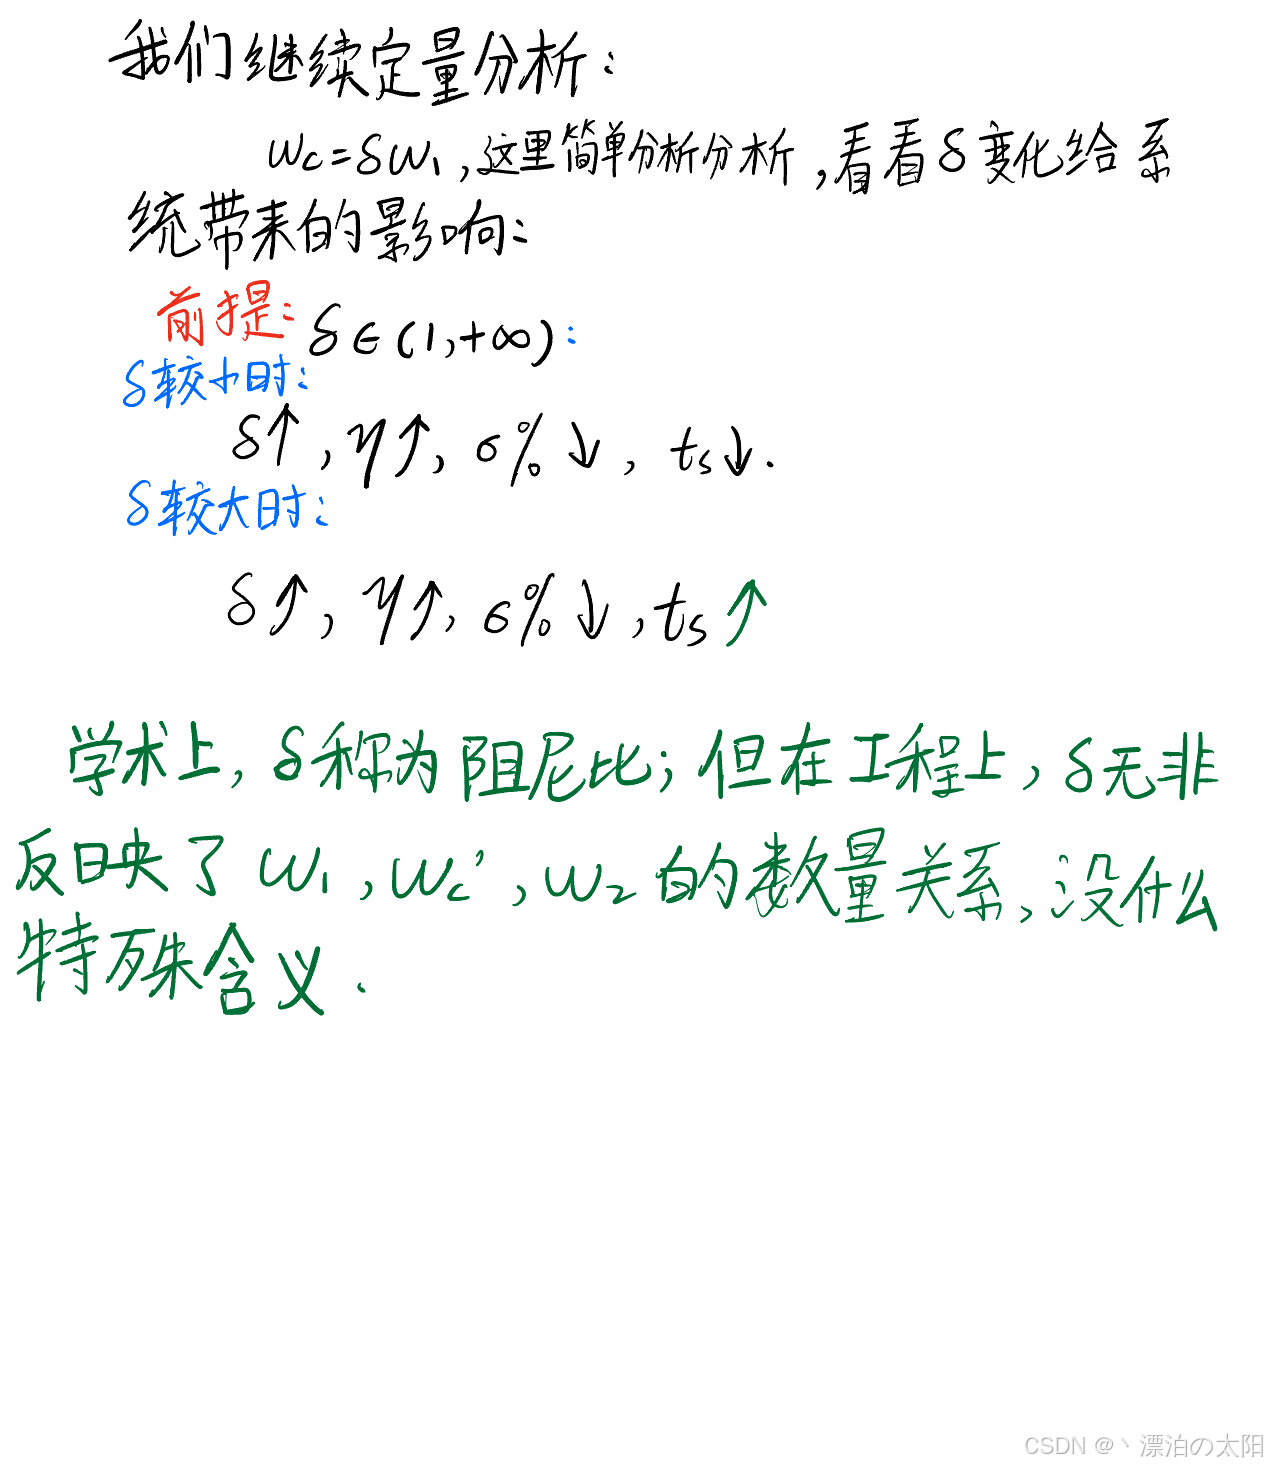 我们继续定量分析：
ωc=δω1,这里简单分析分析,看看δ变化给系
统带来的影响：
前提：δ∈(1,+∞)：
δ较小时：
δ↑,η↑,σ%↓,ts↓.
δ较大时：
δ↑,η↑,σ%↓,ts↑
学术上,δ称为阻尼比;但在工程上,δ无非
反映了ω1,ωc',ω2的数量关系,没什么
特殊含义.
CSDN @丶漂泊の太阳